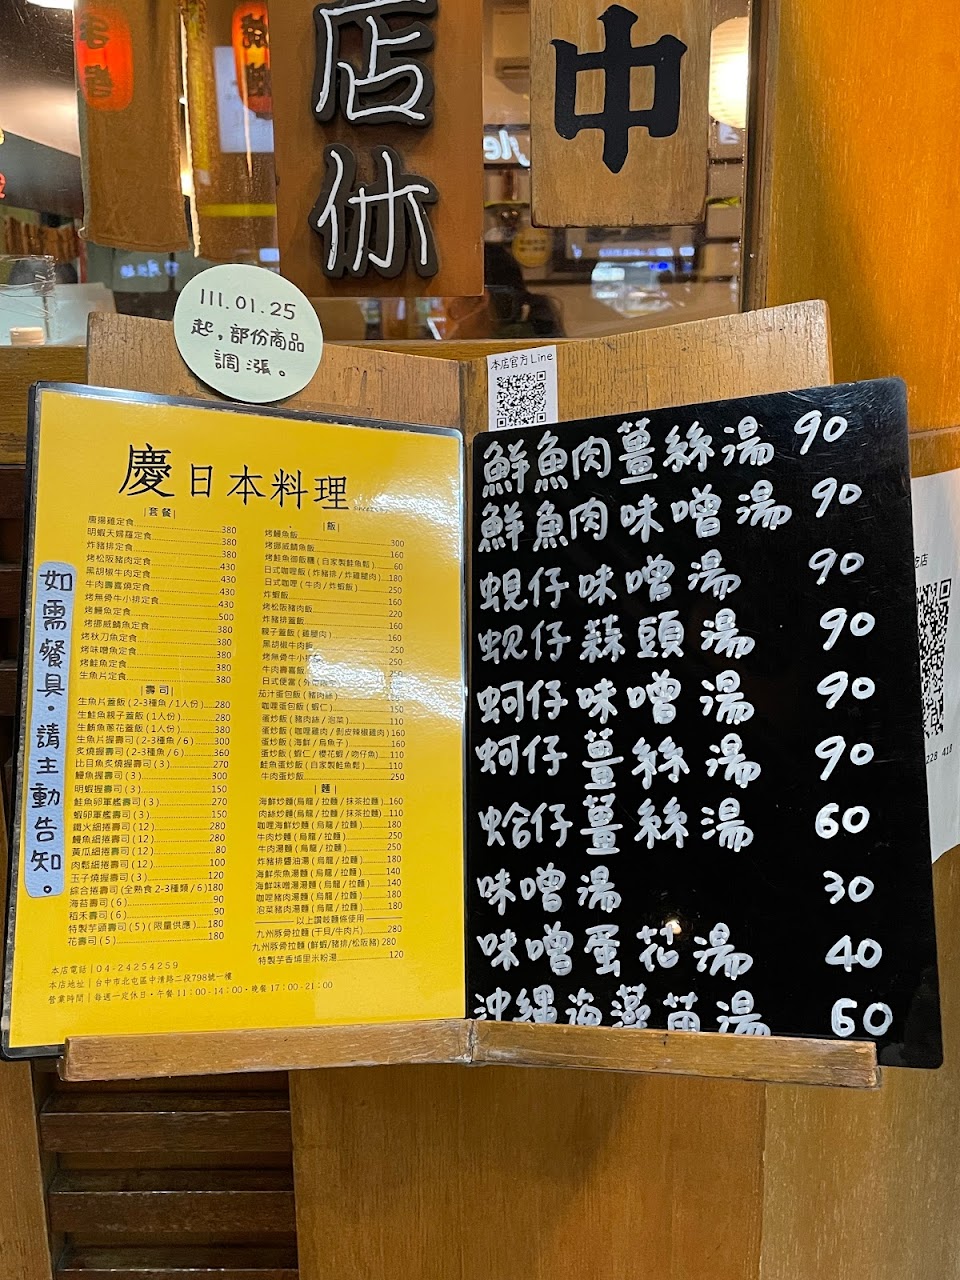 店休
中
111.01.25
起，部份商品
調漲。
本店官方Line
慶日本料理
|套餐|
唐揚雞定食 380
明蝦天婦羅定食 380
炸豬排定食 380
烤松阪豬肉定食 430
黑胡椒牛肉定食 430
牛肉壽喜燒定食 430
烤無骨牛小排定食 430
烤鰻魚定食 500
烤挪威鯖魚定食 380
烤秋刀魚定食 380
烤味噌魚定食 380
烤鮭魚定食 380
生魚片定食 380
|壽司|
生魚片蓋飯(2-3種魚/1人份) 280
生鮭魚親子蓋飯(1人份) 280
生魚蔥花蓋飯(1人份) 380
生魚片握壽司(2-3種魚/6) 300
炙燒握壽司(2-3種魚/6) 360
比目魚炙燒握壽司(3) 270
鰻魚握壽司(3) 300
明蝦握壽司(3) 150
鮭魚卵軍艦壽司(3) 270
蝦卵軍艦壽司(3) 150
鐵火細捲壽司(12) 280
鰻魚細捲壽司(12) 280
黃瓜細捲壽司(12) 80
肉鬆細捲壽司(12) 100
玉子燒握壽司(3) 120
綜合捲壽司(全熟食2-3種類/6) 180
海苔壽司(6) 90
稻禾壽司(6) 90
特製芋頭壽司(5)(限量供應) 180
花壽司(5) 180
本店電話|04-24254259
本店地址|台中市北屯區中清路二段798號一樓
營業時間|每週一定休日・午餐 11:00-14:00・晚餐 17:00-21:00
|飯|
烤鰻魚飯 300
烤挪威鯖魚飯 160
烤鮭魚御飯糰(自家製鮭魚鬆) 60
日式咖哩飯(炸豬排/炸雞腿肉) 180
日式咖哩(牛肉/炸蝦飯) 250
炸蝦飯 160
烤松阪豬肉飯 220
炸豬排蓋飯 160
親子蓋飯(雞腿肉) 160
黑胡椒牛肉飯 250
烤無骨牛小排飯 250
牛肉壽喜飯 250
日式便當
茄汁蛋包飯(豬肉絲)
咖哩蛋包飯(蝦仁) 150
蛋炒飯(豬肉絲/泡菜) 110
蛋炒飯(咖哩雞肉/剝皮辣椒雞肉) 160
蛋炒飯(海鮮/烏魚子) 160
蛋炒飯(蝦仁/櫻花蝦/吻仔魚) 110
鮭魚蛋炒飯(自家製鮭魚鬆) 110
牛肉蛋炒飯 250
|麵|
海鮮炒麵(烏龍/拉麵/抹茶拉麵) 160
肉絲炒麵(烏龍/拉麵/抹茶拉麵) 110
咖哩海鮮炒麵(烏龍/拉麵) 180
牛肉炒麵(烏龍/拉麵) 250
牛肉湯麵(烏龍/拉麵) 250
炸豬排醬油湯(烏龍/拉麵) 180
海鮮柴魚湯麵(烏龍/拉麵) 140
海鮮味噌湯湯麵(烏龍/拉麵) 140
咖哩豬肉湯麵(烏龍/拉麵) 180
泡菜豬肉湯麵(烏龍/拉麵) 180
以上讚岐麵條使用
九州豚骨拉麵(干貝/牛肉片) 280
九州豚骨拉麵(鮮蝦/豬排/松阪豬) 280
特製芋香埔里米粉湯 120
如需餐具，請主動告知。
鮮魚肉薑絲湯 90
鮮魚肉味噌湯 90
蜆仔味噌湯 90
蜆仔蒜頭湯 90
蚵仔味噌湯 90
蚵仔薑絲湯 90
蛤仔薑絲湯 60
味噌湯 30
味噌蛋花湯 40
沖繩海藻苗湯 60
228 418